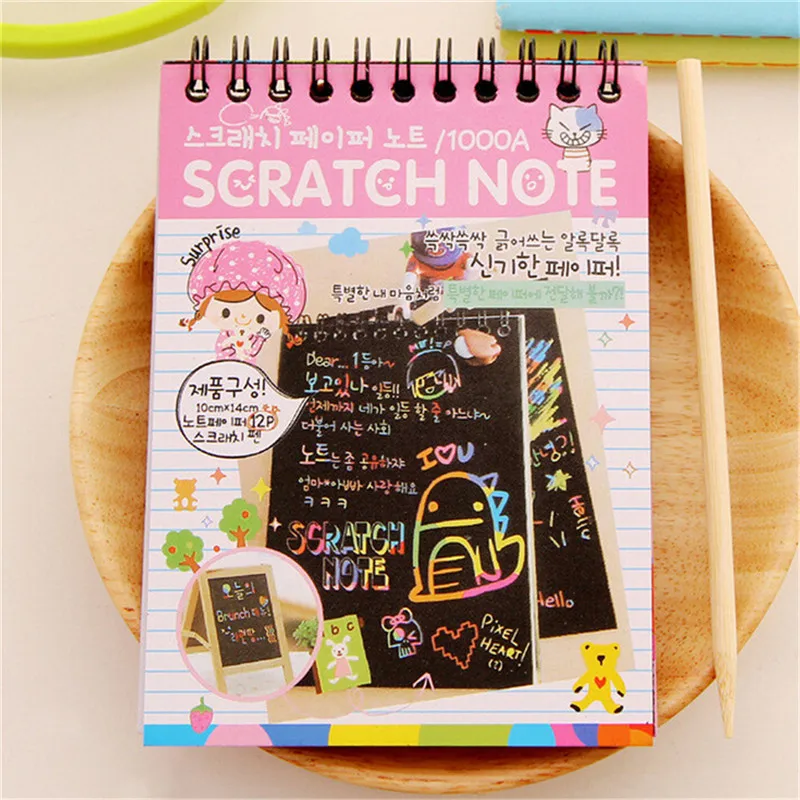 스크래치 페이퍼 노트 /1000A
SCRATCH NOTE
Surprise
쓱싹쓱싹 긁어쓰는 알록달록
신기한 페이퍼!
특별한 내 마음처럼! 특별한 페이퍼에 전달해 볼까?!
제품구성!
10cm×14cm
노트페이퍼 12P
스크래치 펜
Dear... 1등아~
보고있나 일등!!
언제까지 네가 일등 할 줄 아느냐~
더불어 사는 사회
노트는 좀 공유하자
엄마*아빠 사랑해요
ㅋㅋㅋ
I♥U
SCRATCH
NOTE
안녕?!
Hello
Hello
오늘의
Brunch 메뉴!
a b c
PIXEL
HEART!
(?)